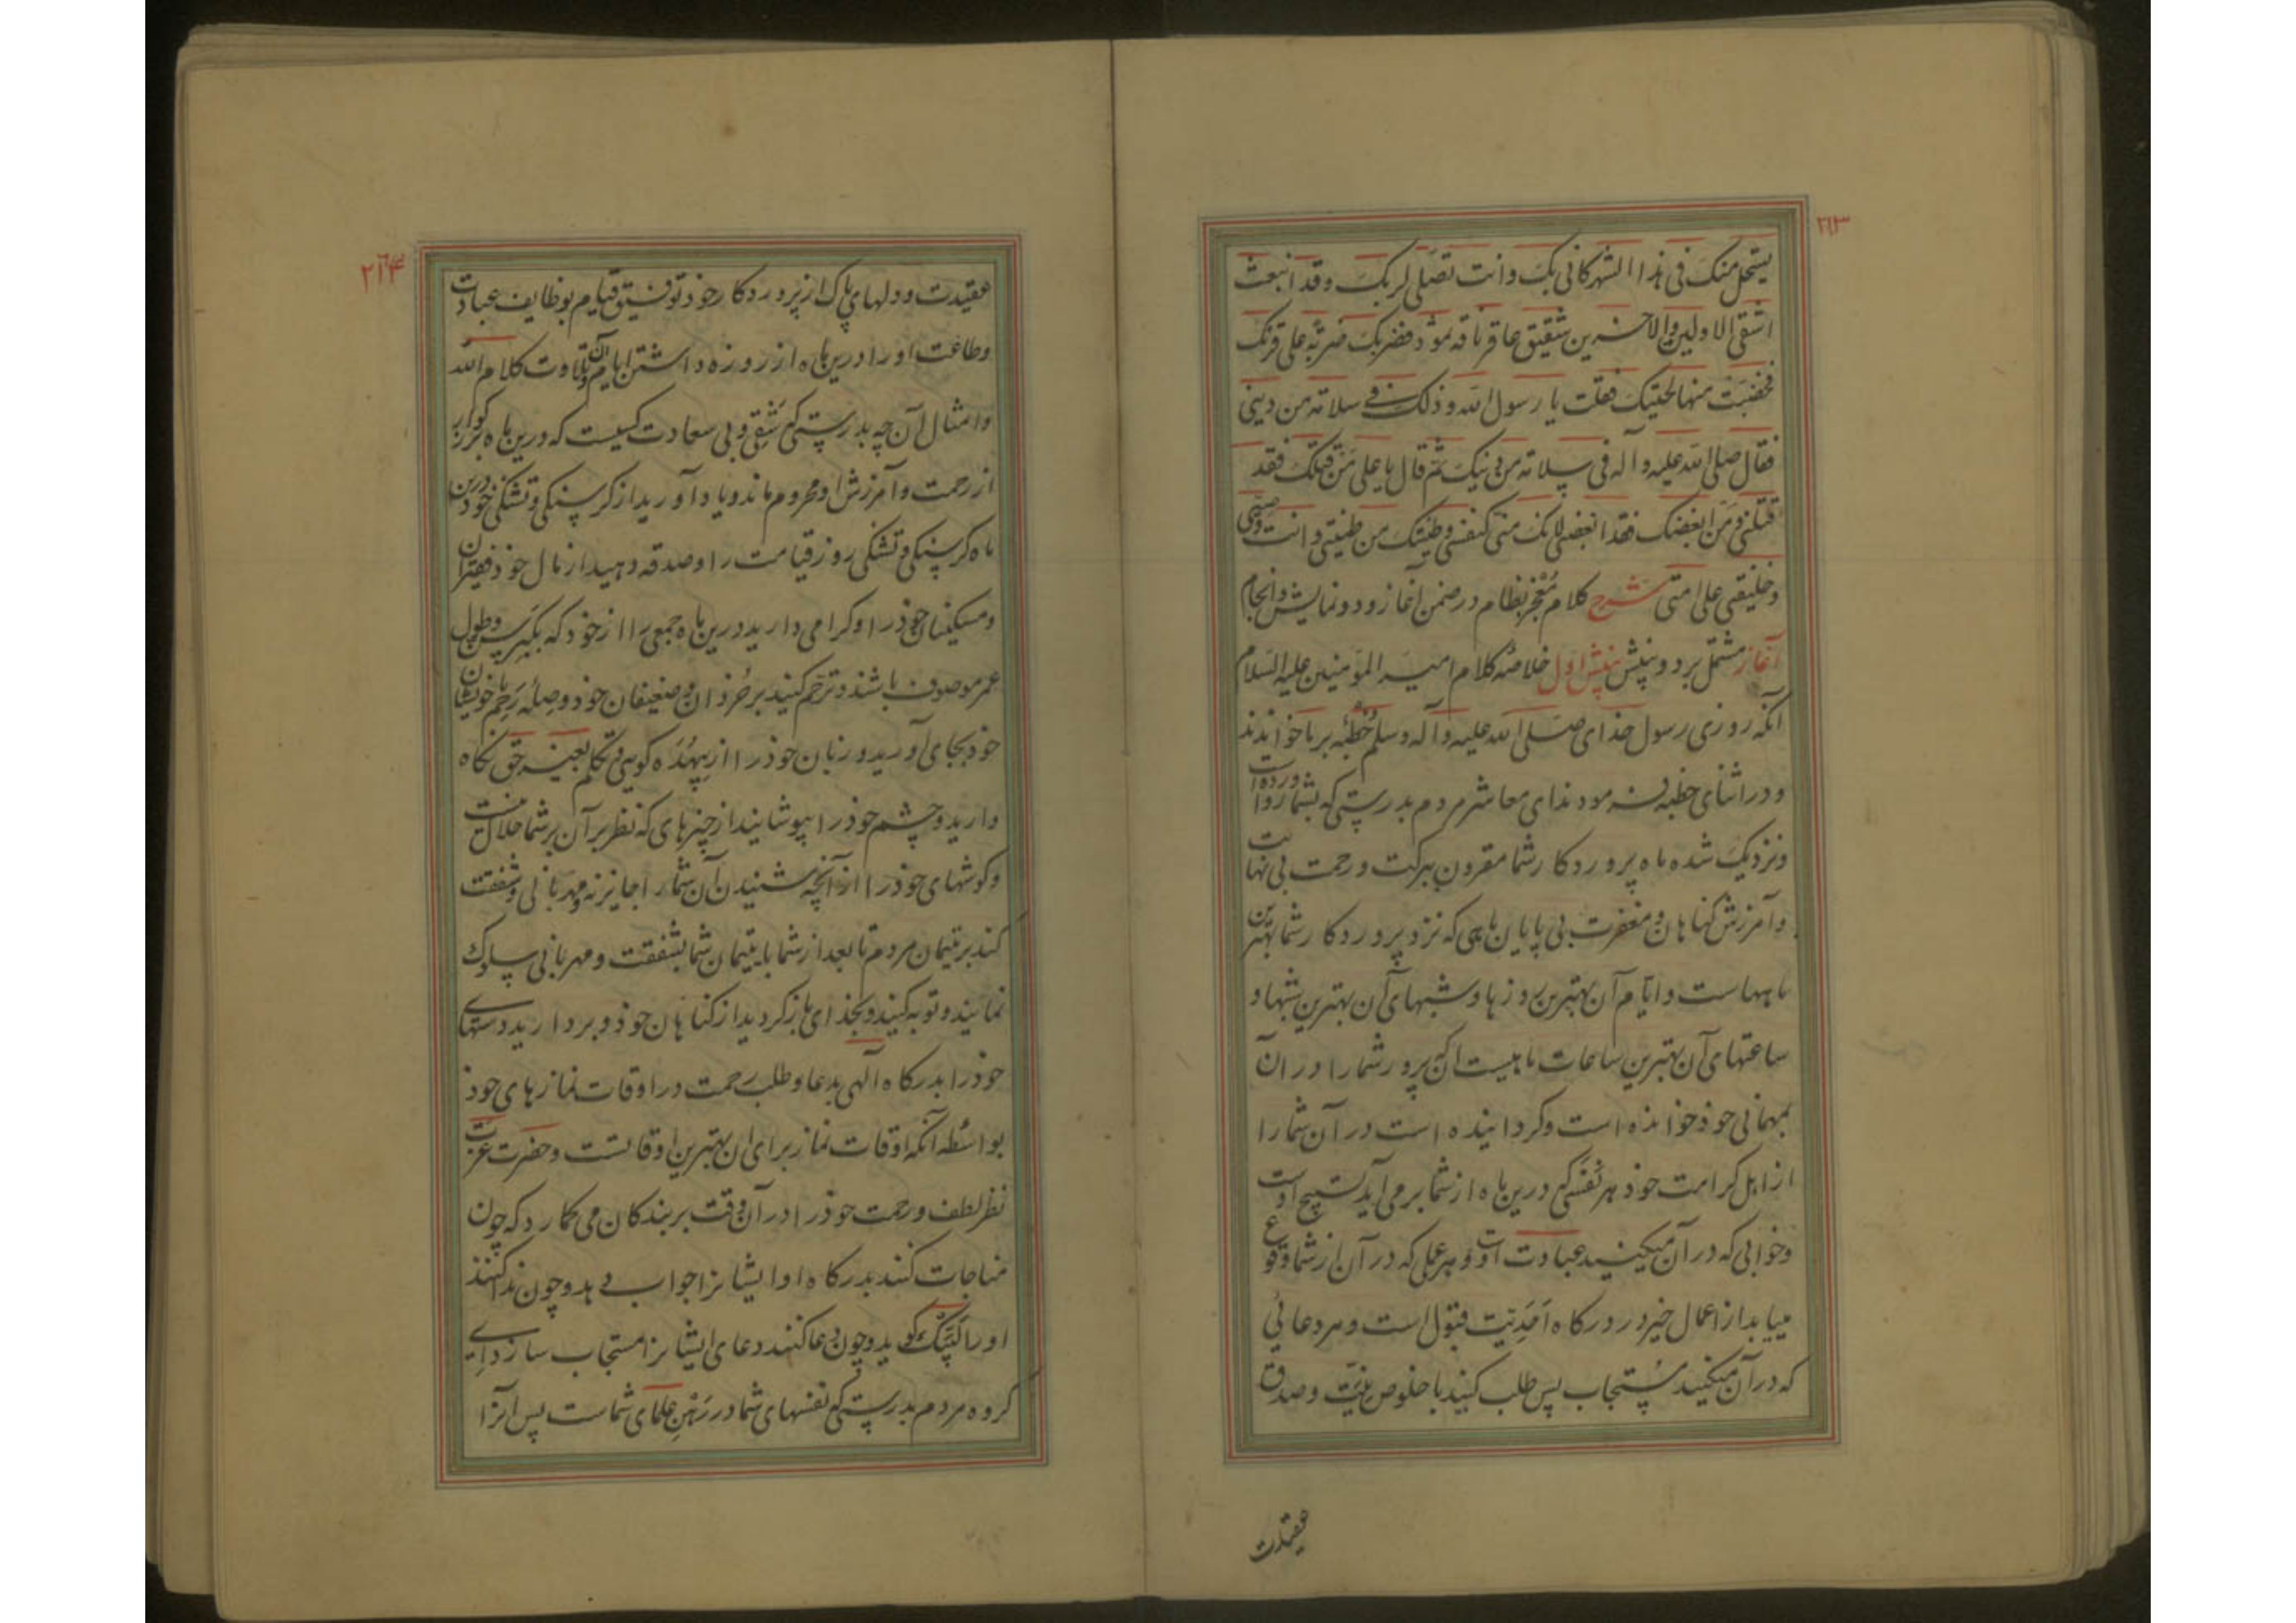 ٢٦٣
یستحل منک فی هذا الشهر کانی بک وانت تصلی لربک وقد انبعث
اشقی الاولین والاخرین شقیق عاقر ناقه ثمود فضربک ضربة علی قرنک
فخضبت منها لحیتک فقلت یا رسول الله وذلک فی سلامة من دینی
فقال صلی الله علیه وآله فی سلامة من دینک ثم قال یا علی من قتلک فقد
قتلنی ومن ابغضک فقد ابغضنی لانک منی کنفسی وطینتک من طینتی وانت وصیی
وخلیفتی علی امتی شرح کلام معجز نظام در ضمن آغاز و دو نمایش و انجام
آغاز مشتمل بر دو بینش بینش اول خلاصهٔ کلام امیر المؤمنین علیه السلام
آنکه روزی رسول خذای صلی الله علیه وآله وسلم خطبهٔ بر ما خواندند
و در اثنای خطبه فرمودند ای معاشر مردم بدرستی که بشما روآورده است
و نزدیک شده ماه پروردکار شما مقرون ببرکت و رحمت بی نهایت
و آمرزش کناهان و مغفرت بی پایان ماهی که نزد پروردکار شما بهترین
ماههاست و ایام آن بهترین روزها و شبهای آن بهترین شبها و
ساعتهای آن بهترین ساعات ماهیست آنکه پرور شما را در آن
بمهمانی خوذ خوانده است و کردانیده است در آن شما را
از اهل کرامت خوذ هر نفسی که درین ماه از شما برمی آید تسبیح اوست
و خوابی که در آن میکنید عبادت اوست و هر عملی که در آن از شما وقوع
مییابد از اعمال خیر در درکاه احدیت قبول است و هر دعائی
که در آن میکنید مستجاب پس طلب کنید با خلوص نیت و صدق
عقیدت
٢٦٤
عقیدت و دلهای پاک از پروردکار خود توفیق قیام بوظایف عبادت
و طاعت او را درین ماه از روزه داشتن ایام آن و تلاوت کلام الله
و امثال آن چه بدرستی که شقی و بی سعادت کسیست که درین ماه بزرکوار
از رحمت و آمرزش او محروم ماند و یاد آورید از کرسنکی و تشنکی خود درین
ماه کرسنکی و تشنکی روز قیامت را و صدقه دهید از مال خوذ فقیران
و مسکینان خوذ را و کرامی دارید درین ماه جمعی را از خود که بکبر سن و طول
عمر موصوف باشند و ترحم کنید بر خردان و ضعیفان خوذ و صلهٔ رحم با خویشان
خود بجای آورید و زبان خوذ را از بیهده کویی و تکلم بغیر حق نکاه
دارید و چشم خوذ را بپوشانید از چیزهای که نظر بر آن بر شما حلال نیست
و کوشهای خوذ را از آنچه شنیدن آن شما را جایز نه و مهربانی و شفقت
کنید بر یتیمان مردم تا بعد از شما با یتیمان شما بشفقت و مهربانی سلوک
نمایند و توبه کنید و بخذای باز کردید از کناهان خوذ و بردارید دستهای
خوذ را بدرکاه آلهی بدعا و طلب رحمت در اوقات نمازهای خوذ
بواسطه آنکه اوقات نماز برای آن بهترین اوقاتست و حضرت عزت
نظر لطف و رحمت خوذ را در آن وقت بر بندکان می کمارد که چون
مناجات کنند بدرکاه او ایشانرا جواب میدهد و چون ندا کنند
او را لبیک کوید و چون دعا کنند دعای ایشانرا مستجاب سازد ای
کروه مردم بدرستی که نفسهای شما در رهن عملهای شماست پس آنرا